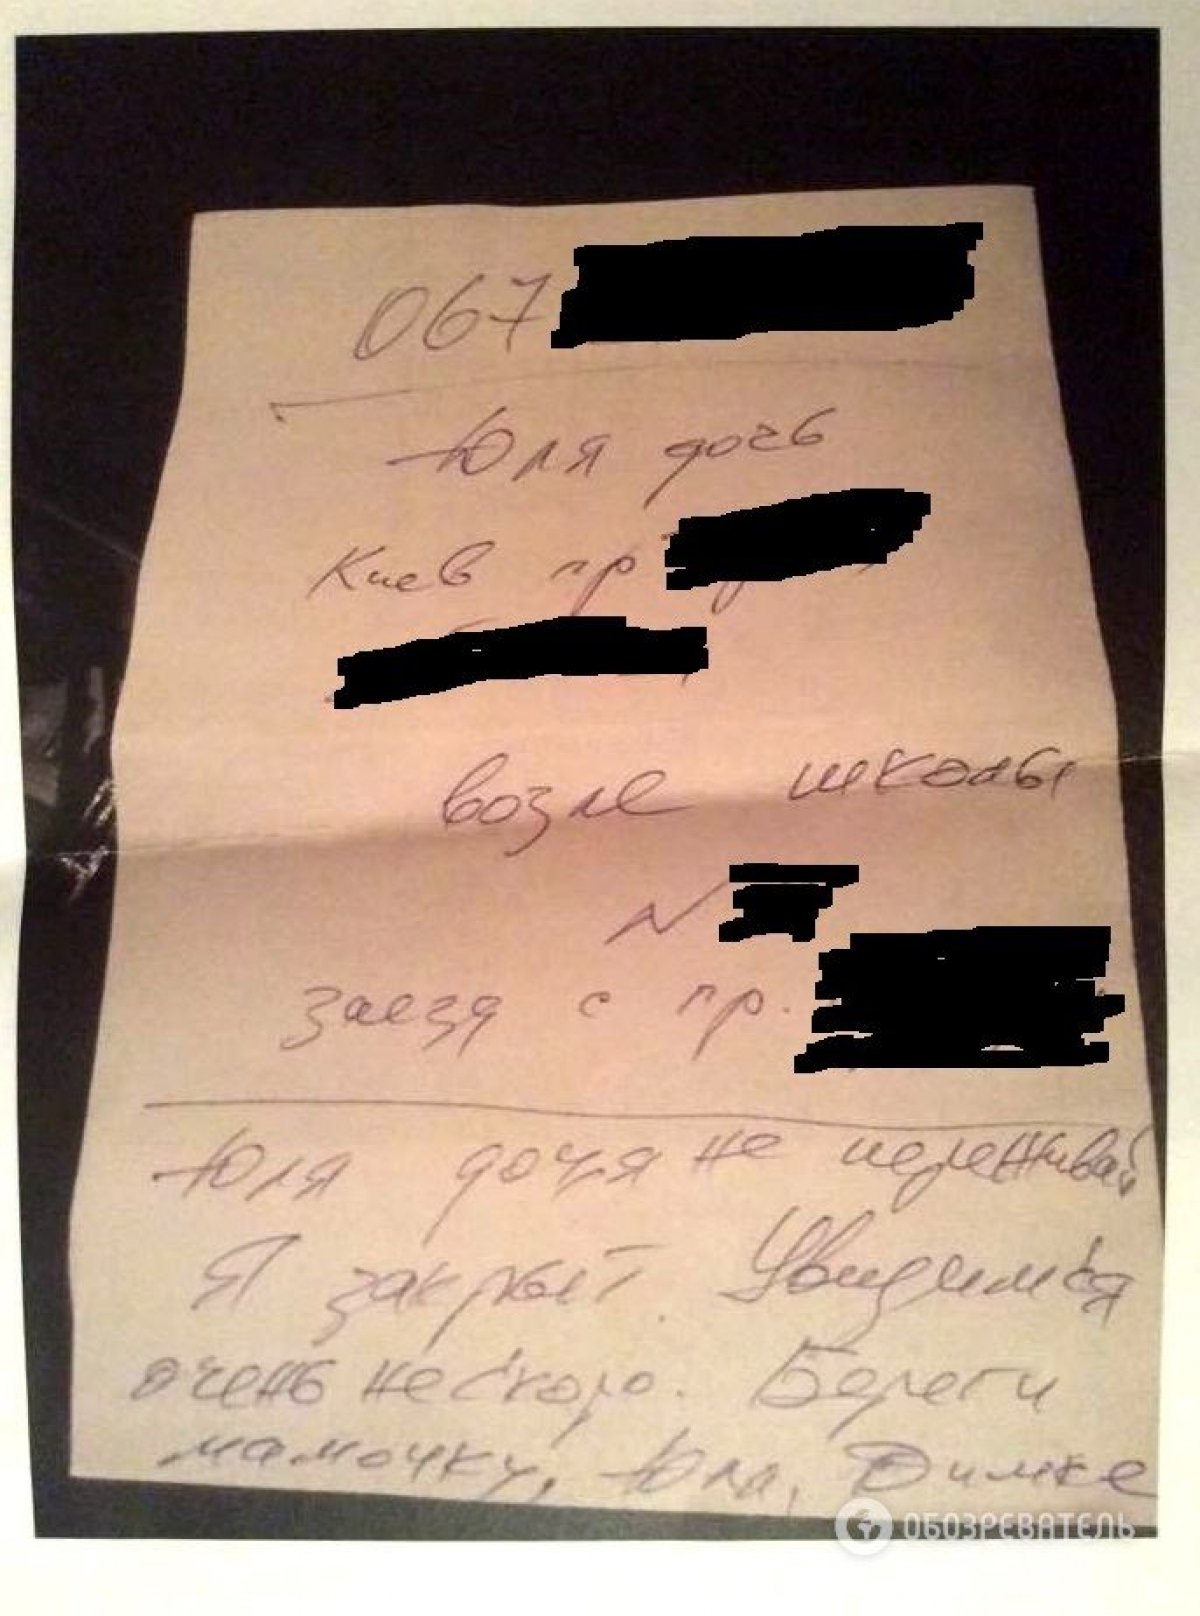 067
Юля дочь
Киев пр
возле школы
N
заезд с пр.
Юля доця не переживай
Я закрыт. Увидимся
очень не скоро. Береги
мамочку, Юли, Димке
ОБОЗРЕВАТЕЛЬ